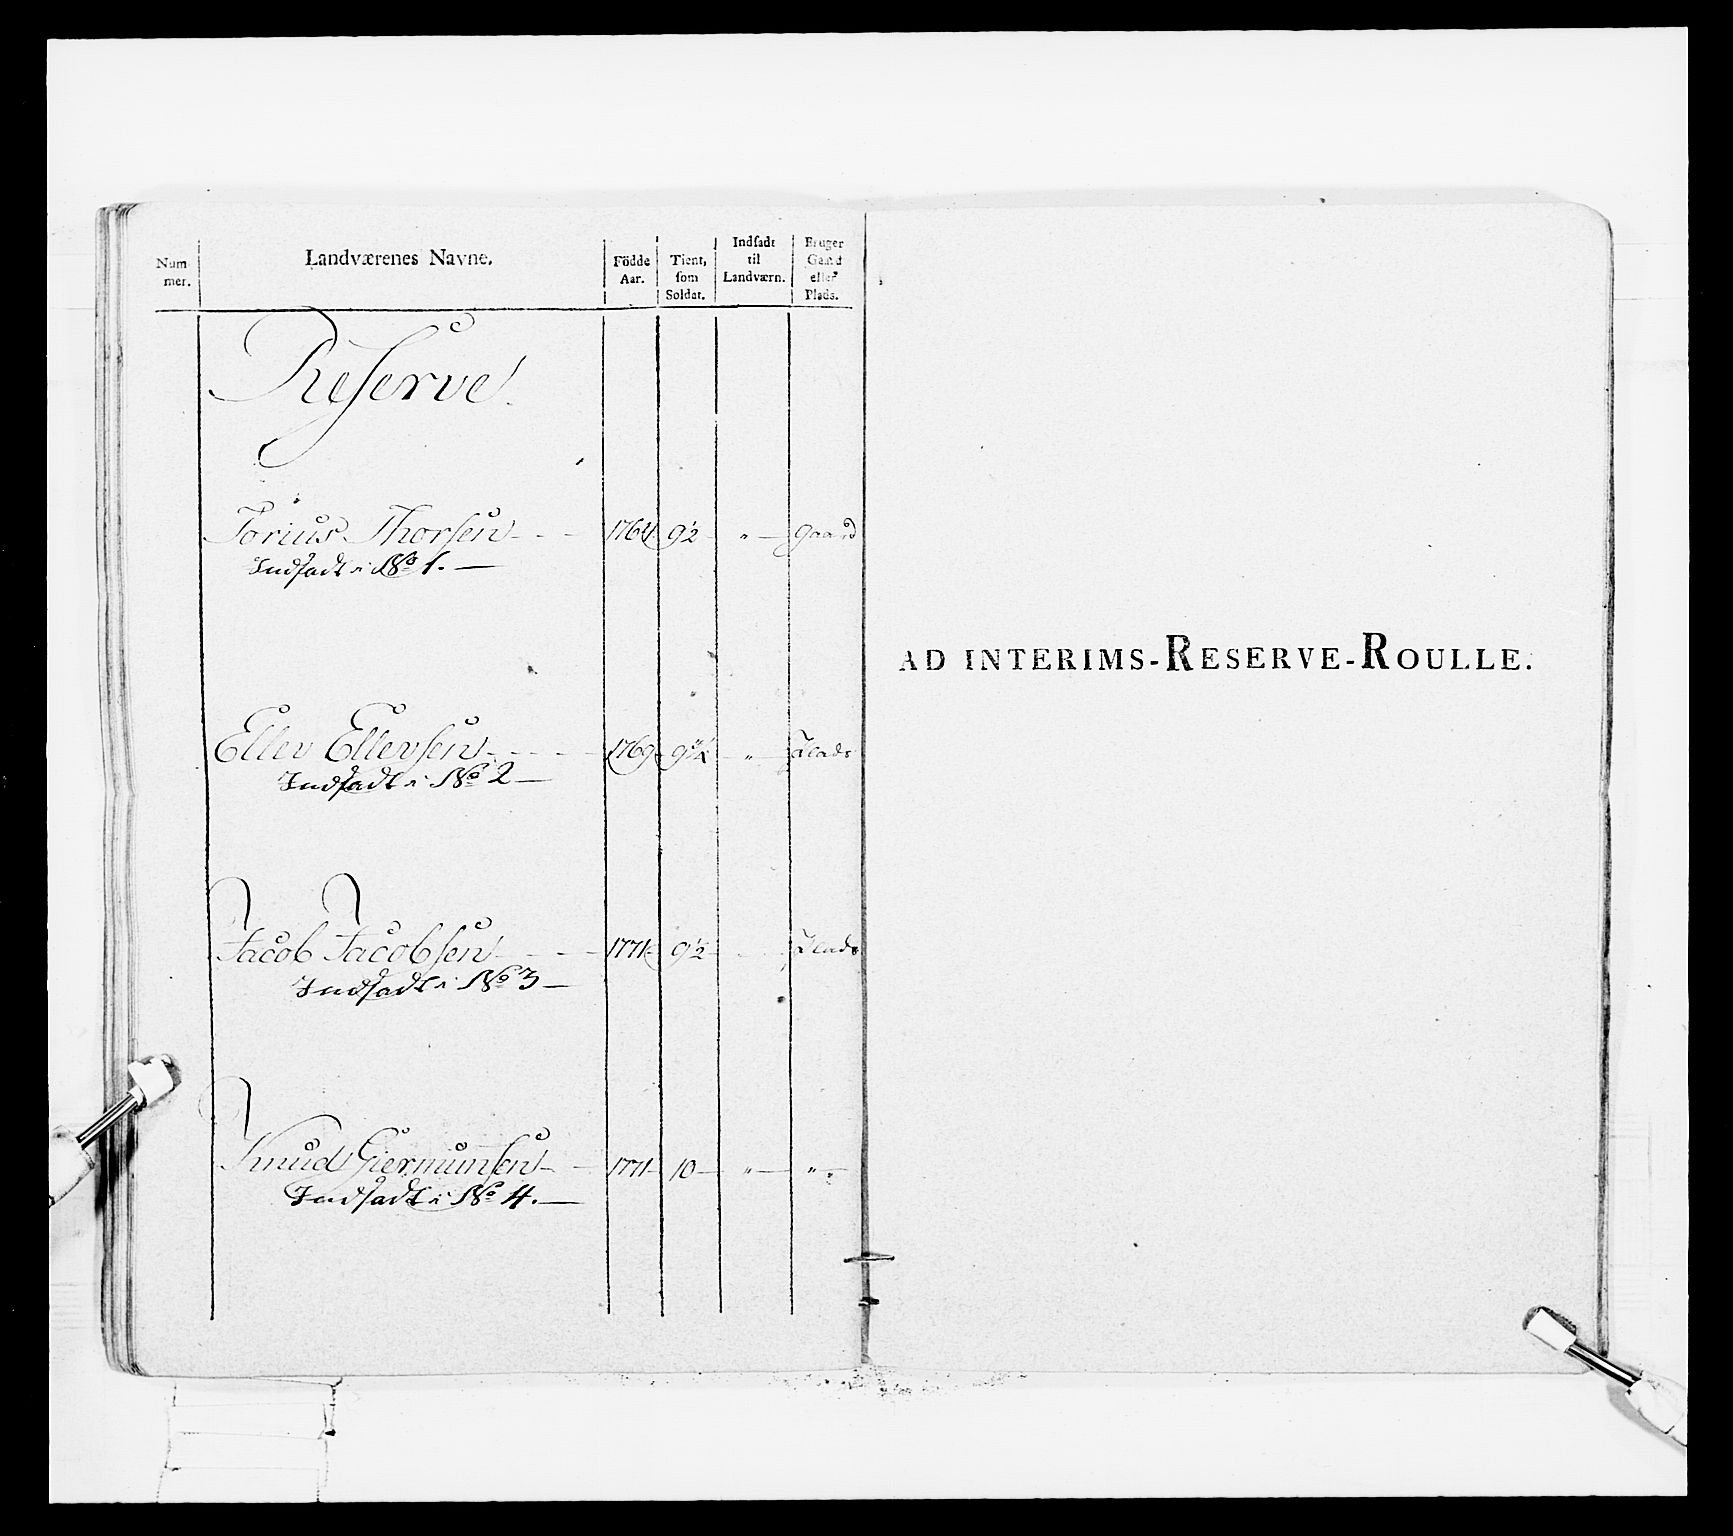 Num-mer. Landværenes Navne. Födde Aar. Tient, som Soldat. Indsadt til Landværn. Bruger Gaard eller Plads.
Reserve
Torius Thorsen - - 1764 9½ " Gaard
Indsadt i No 1.
Ellev Ellevsen - - - - 1769 9¼ " Plads
Indsadt i No 2
Jacob Jacobsen - - - - 1771 9½ Plads
Indsadt i No 3
Knud Giermunsen - - 1771 10 " "
Indsadt i No 4.
AD INTERIMS-RESERVE-ROULLE.